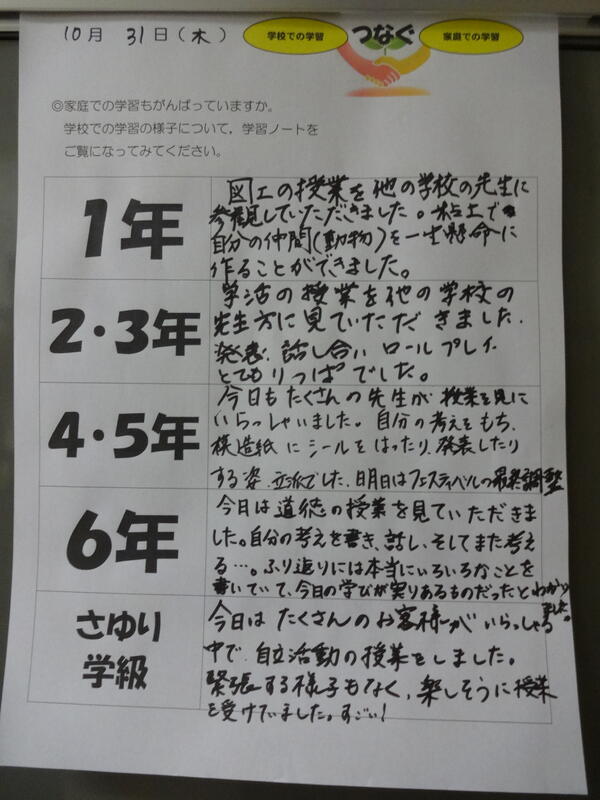 10月 31日(木)
学校での学習
つなぐ
家庭での学習
◎家庭での学習もがんばっていますか。
学校での学習の様子について,学習ノートを
ご覧になってみてください。
1年
図工の授業を他の学校の先生に
参観していただきました。粘土で
自分の仲間(動物)を一生懸命に
作ることができました。
2・3年
学活の授業を他の学校の
先生方に見ていただきました.
発表.話し合い ロールプレイ
とてもりっぱでした。
4・5年
今日もたくさんの先生が授業を見に
いらっしゃいました。自分の考えをもち、
模造紙にシールをはったり、発表したり
する姿.立派でした.明日はフェスティバルの最終調整
6年
今日は道徳の授業を見ていただきま
した。自分の考えを書き、話し、そしてまた考え
る…。ふり返りには本当にいろいろなことを
書いていて、今日の学びが実りあるものだったとわかり
ました。
さゆり
学級
今日はたくさんのお客様がいらっしゃる
中で、自立活動の授業をしました。
緊張する様子もなく、楽しそうに授業
を受けていました。すごい!